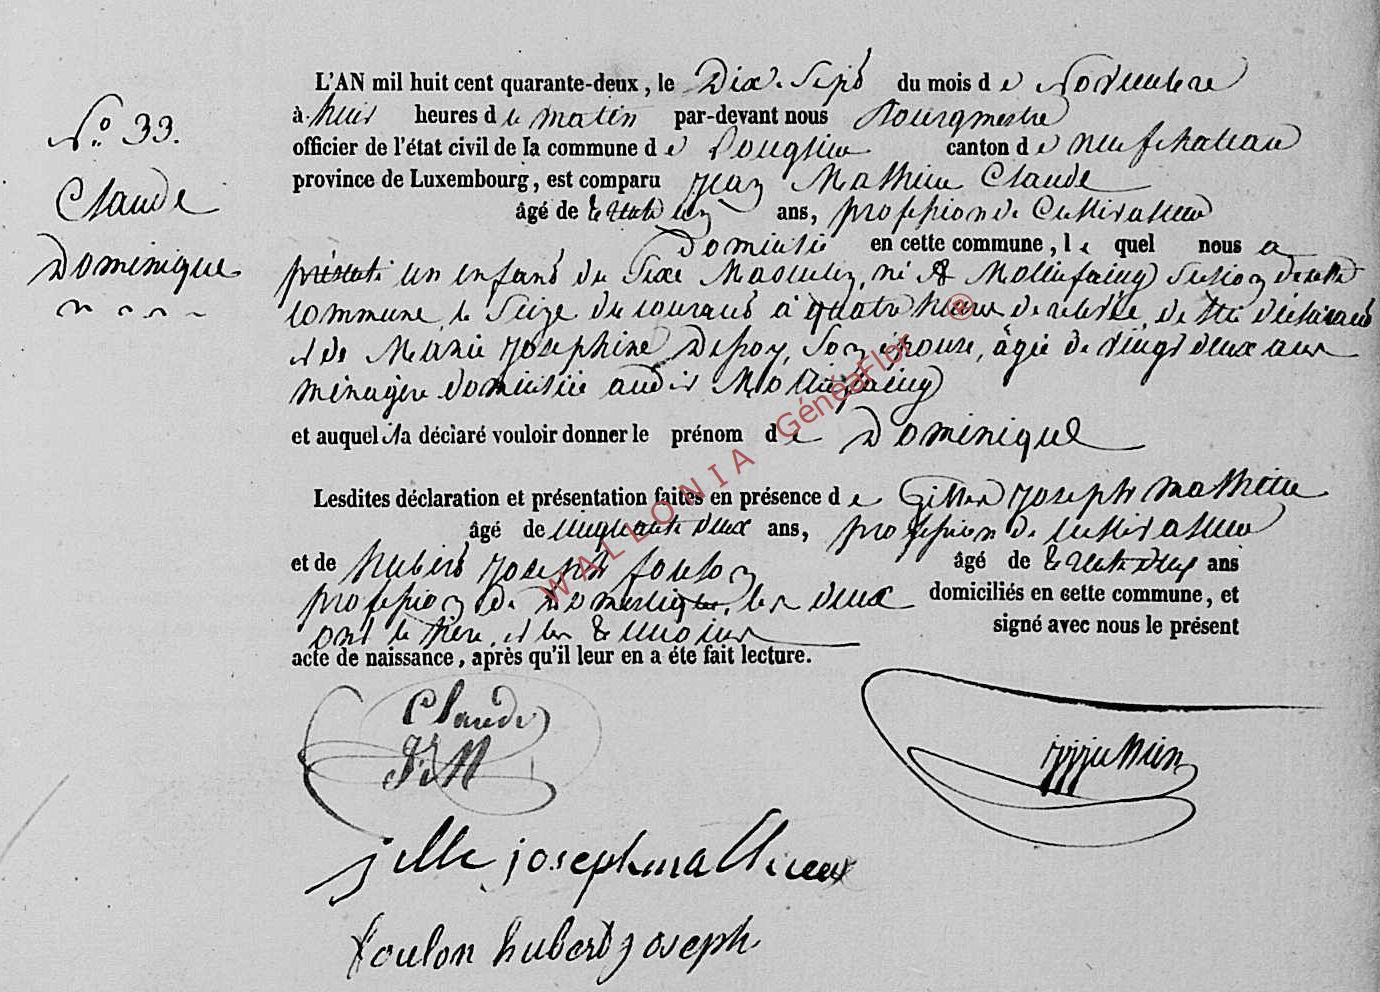 N.o 33.
Claude
Dominique
L'AN mil huit cent quarante-deux, le Dix Sept du mois de Novembre
à huit heures du matin par-devant nous Bourgmestre
officier de l'état civil de la commune de Longlier canton de neufchateau
province de Luxembourg, est comparu Jean Mathieu Claude
âgé de trente ans, profession de Cultivateur
Domicilié en cette commune, le quel nous a
présenté un enfant du Sexe Masculin, né à Mollifaing Section de cette
commune, le Seize du courant à quatre heures de relevée, de lui déclarant
et de Marie Josephine son épouse, âgée de vingt deux ans
ménagère domiciliée audit Mollifaing
et auquel il a déclaré vouloir donner le prénom de Dominique
Lesdites déclaration et présentation faites en présence de Gilles Joseph Mathieu
âgé de cinquante deux ans, profession de cultivateur
et de Hubert Joseph Toulon âgé de ans
profession de Domestique, les deux domiciliés en cette commune, et
ont le père, et les témoins signé avec nous le présent
acte de naissance, après qu'il leur en a éte fait lecture.
Claude
J. M
jille joseph mathieu
toulon hubert joseph
WALLONIA GénéaFlor ®